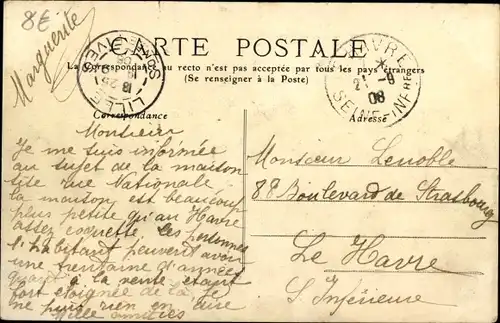 8E
Marguerite
CARTE POSTALE
La Correspondance au recto n'est pas acceptée par tous les pays étrangers
(Se renseigner à la Poste)
Correspondance
Adresse
LE HAVRE
08
SEINE-INFRE
SOMME
Monsieur
Je me suis informée
au sujet de la maison
site rue Nationale
la maison est beaucoup
plus petite qu'au Havre
assez coquette. les personnes
l'habitant peuvent avoir
une trentaine d'années
quant à la vente étant
fort éloignée de la je
ne puis rien en dire
Mille amitiés
Monsieur Lenoble
82 Boulevard de Strasbourg
Le Havre
S. Inférieure